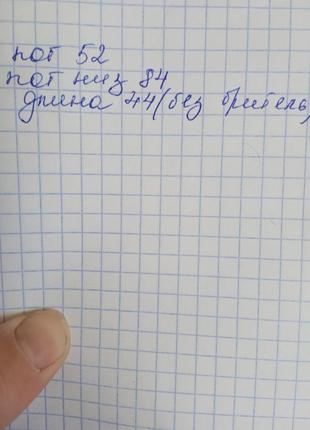 пог 52
пог низ 84
длина 44 (без бретель)